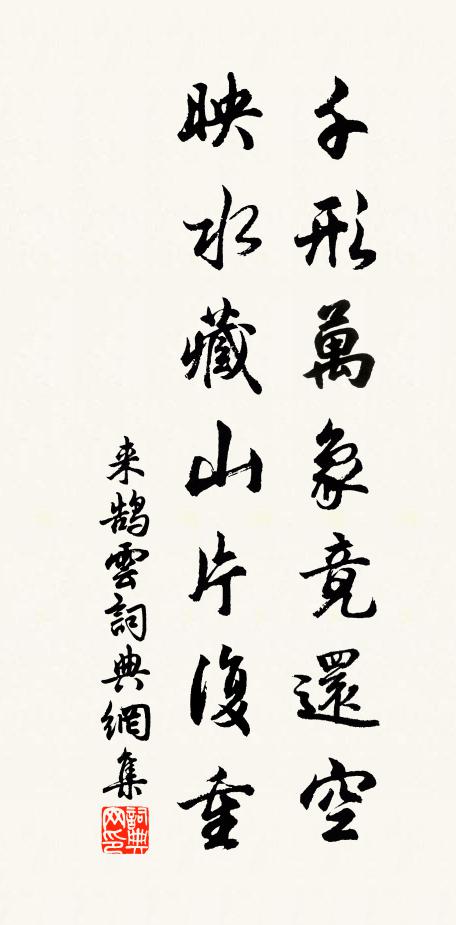 千形萬象竟還空
映水藏山片復重
来鵠雲詞典網集
詞典网印